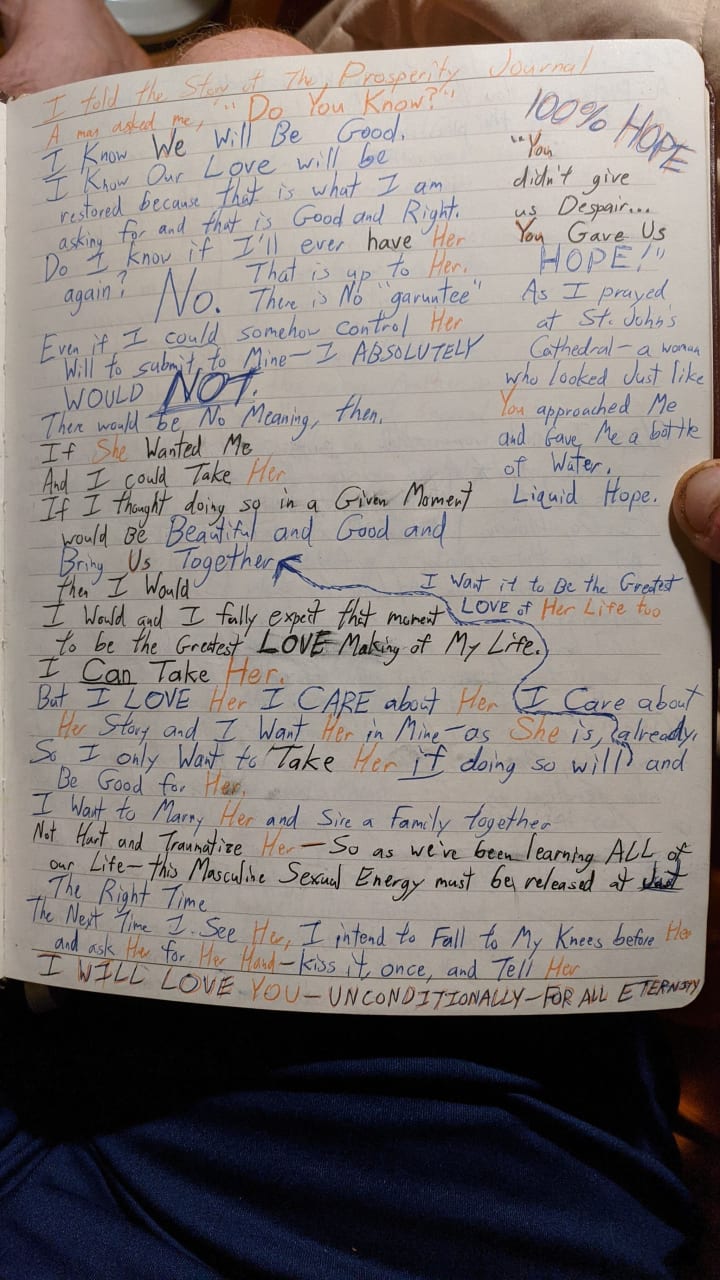 I told the Story of The Prosperity Journal
A man asked me, "Do You Know?"
I Know We Will Be Good.
I Know Our Love will be
restored because that is what I am
asking for and that is Good and Right.
Do I know if I'll ever have Her
again? That is up to Her.
No. There is No "garuntee"
Even if I could somehow control Her
Will to submit to Mine — I ABSOLUTELY
WOULD NOT.
There would be No Meaning, then.
If She Wanted Me
And I could Take Her
If I thought doing so in a Given Moment
would Be Beautiful and Good and
Bring Us Together
then I Would
I Would and I fully expect that moment
to be the Greatest LOVE Making of My Life.
I Can Take Her.
But I LOVE Her I CARE about Her (I Care about
Her Story and I Want Her in Mine — as She is, already.
So I only Want to Take Her if doing so will) and
Be Good for Her.
I Want to Marry Her and Sire a Family together
Not Hurt and Traumatize Her — So as we've been learning ALL of
our Life — this Masculine Sexual Energy must be released at
The Right Time
The Next Time I See Her, I intend to Fall to My Knees before Her
and ask Her for Her Hand — kiss it, once, and Tell Her
I WILL LOVE YOU — UNCONDITIONALLY — FOR ALL ETERNITY
100% HOPE
"You
didn't give
us Despair...
You Gave Us
HOPE!"
As I prayed
at St. John's
Cathedral — a woman
who looked Just like
You approached Me
and Gave Me a bottle
of Water.
Liquid Hope.
I Want it to Be the Greatest
LOVE of Her Life too